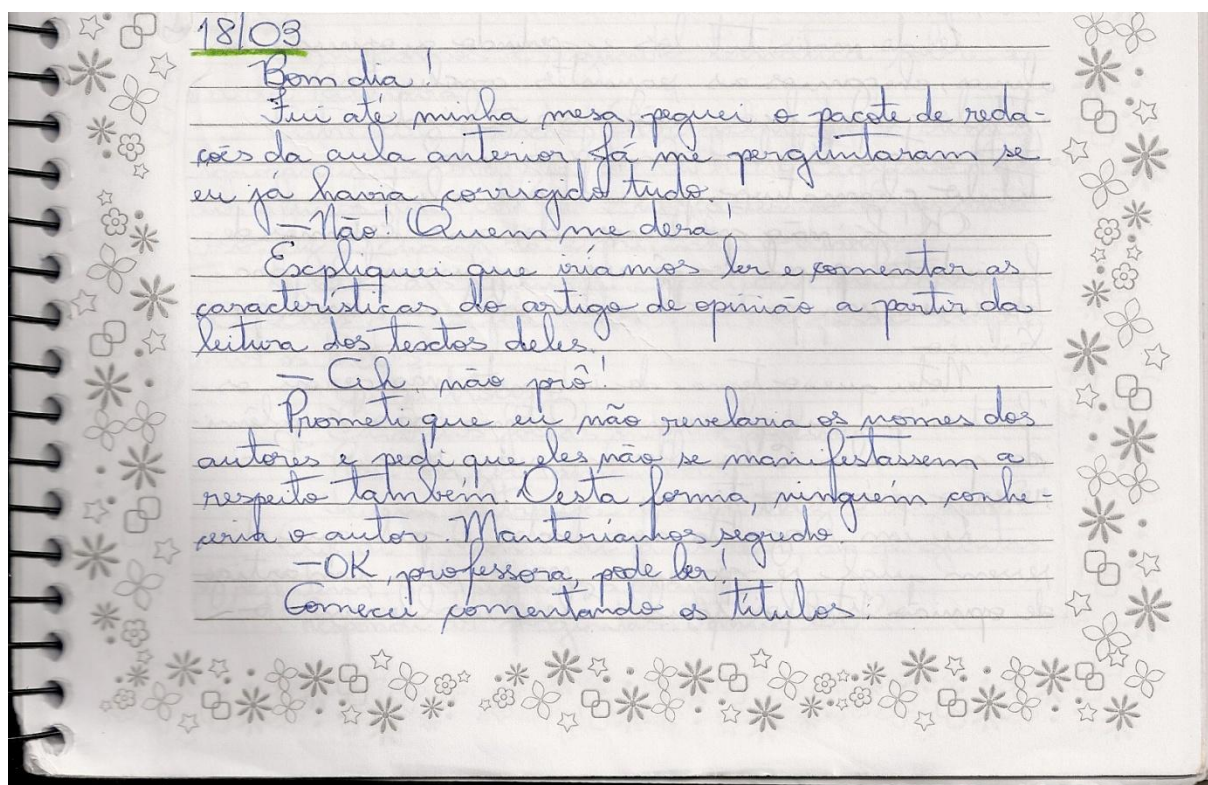 18/03
Bom dia!
Fui até minha mesa, peguei o pacote de reda-
ções da aula anterior. Já me perguntaram se
eu já havia corrigido tudo.
— Não! Quem me dera!
Expliquei que iríamos ler e comentar as
características do artigo de opinião a partir da
leitura dos textos deles.
— Ah não prô!
Prometi que eu não revelaria os nomes dos
autores e pedi que eles não se manifestassem a
respeito também. Desta forma, ninguém conhe-
ceria o autor. Manteríamos segredo.
— OK, professora, pode ler!
Comecei comentando os títulos: